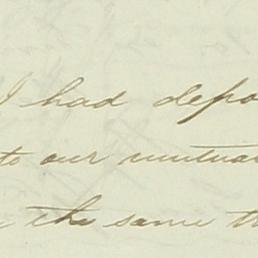 I had depo
to our mutua
the same t